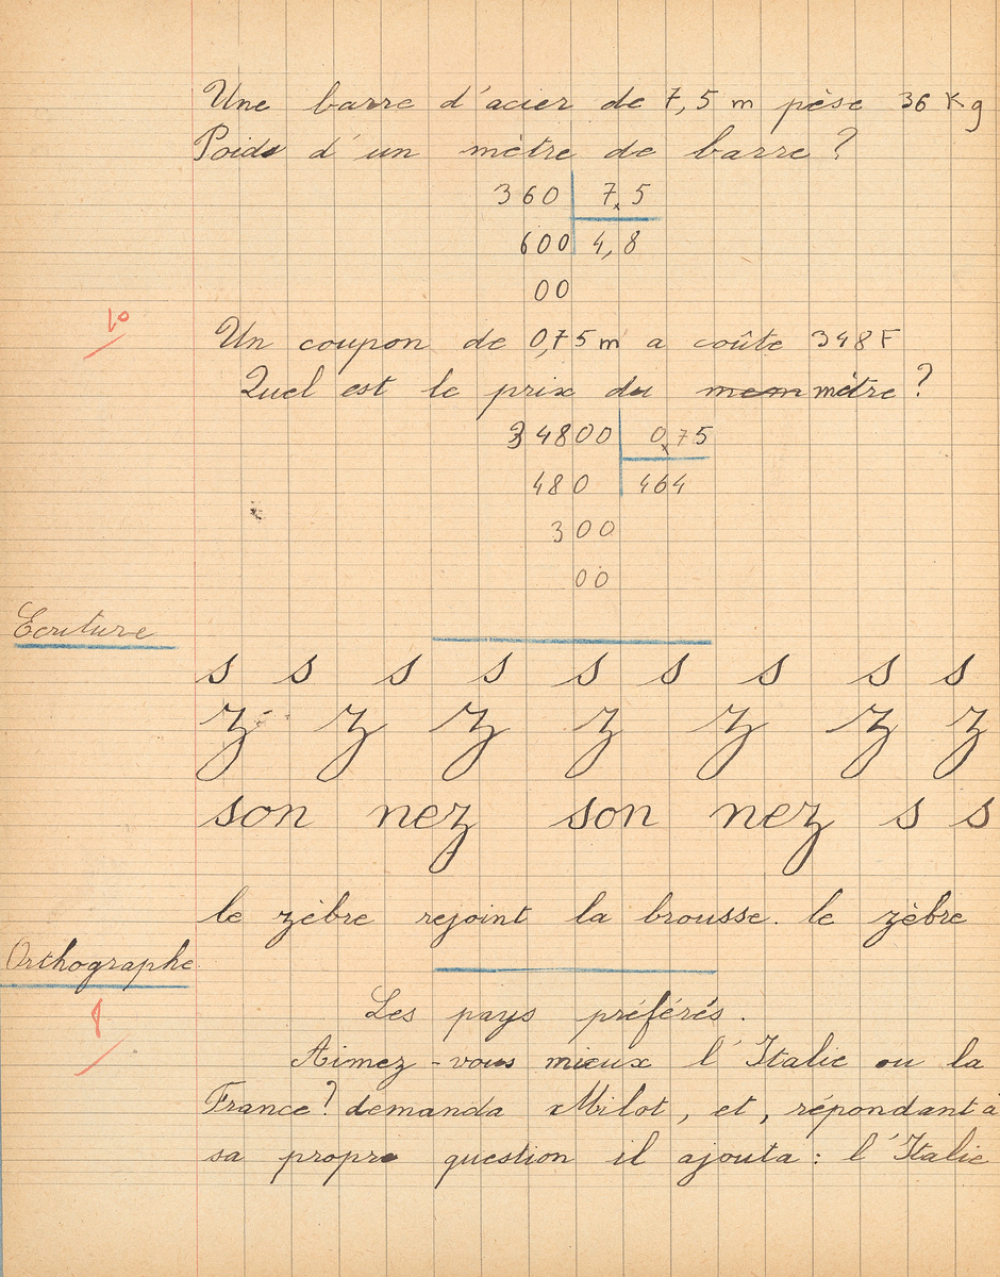 Une barre d'acier de 7,5 m pèse 36 Kg
Poids d'un mètre de barre ?
360 7,5
600 4,8
00
10
Un coupon de 0,75 m a coûte 348 F
Quel est le prix du mem mètre ?
34800 0,75
480 464
300
00
Ecriture
s s s s s s s s s
z z z z z z z
son nez son nez s s
le zèbre rejoint la brousse. le zèbre
Orthographe
Les pays préférés.
Aimez-vous mieux l'Italie ou la
France ? demanda Milot, et, répondant à
sa propre question il ajouta : l'Italie